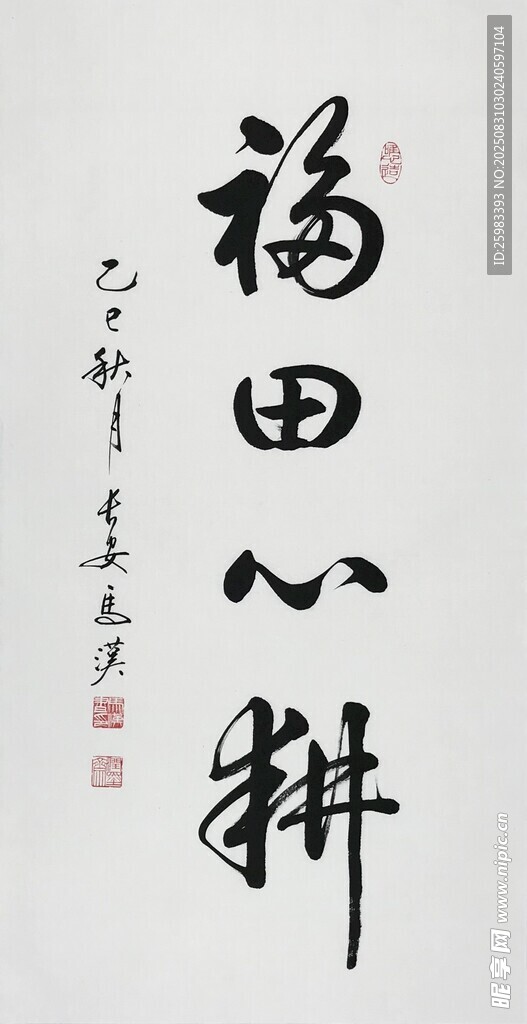 福田心耕
乙巳秋月 长安 馬漢
ID:25983393 NO:20250831030240597104
昵享网 www.nipic.cn